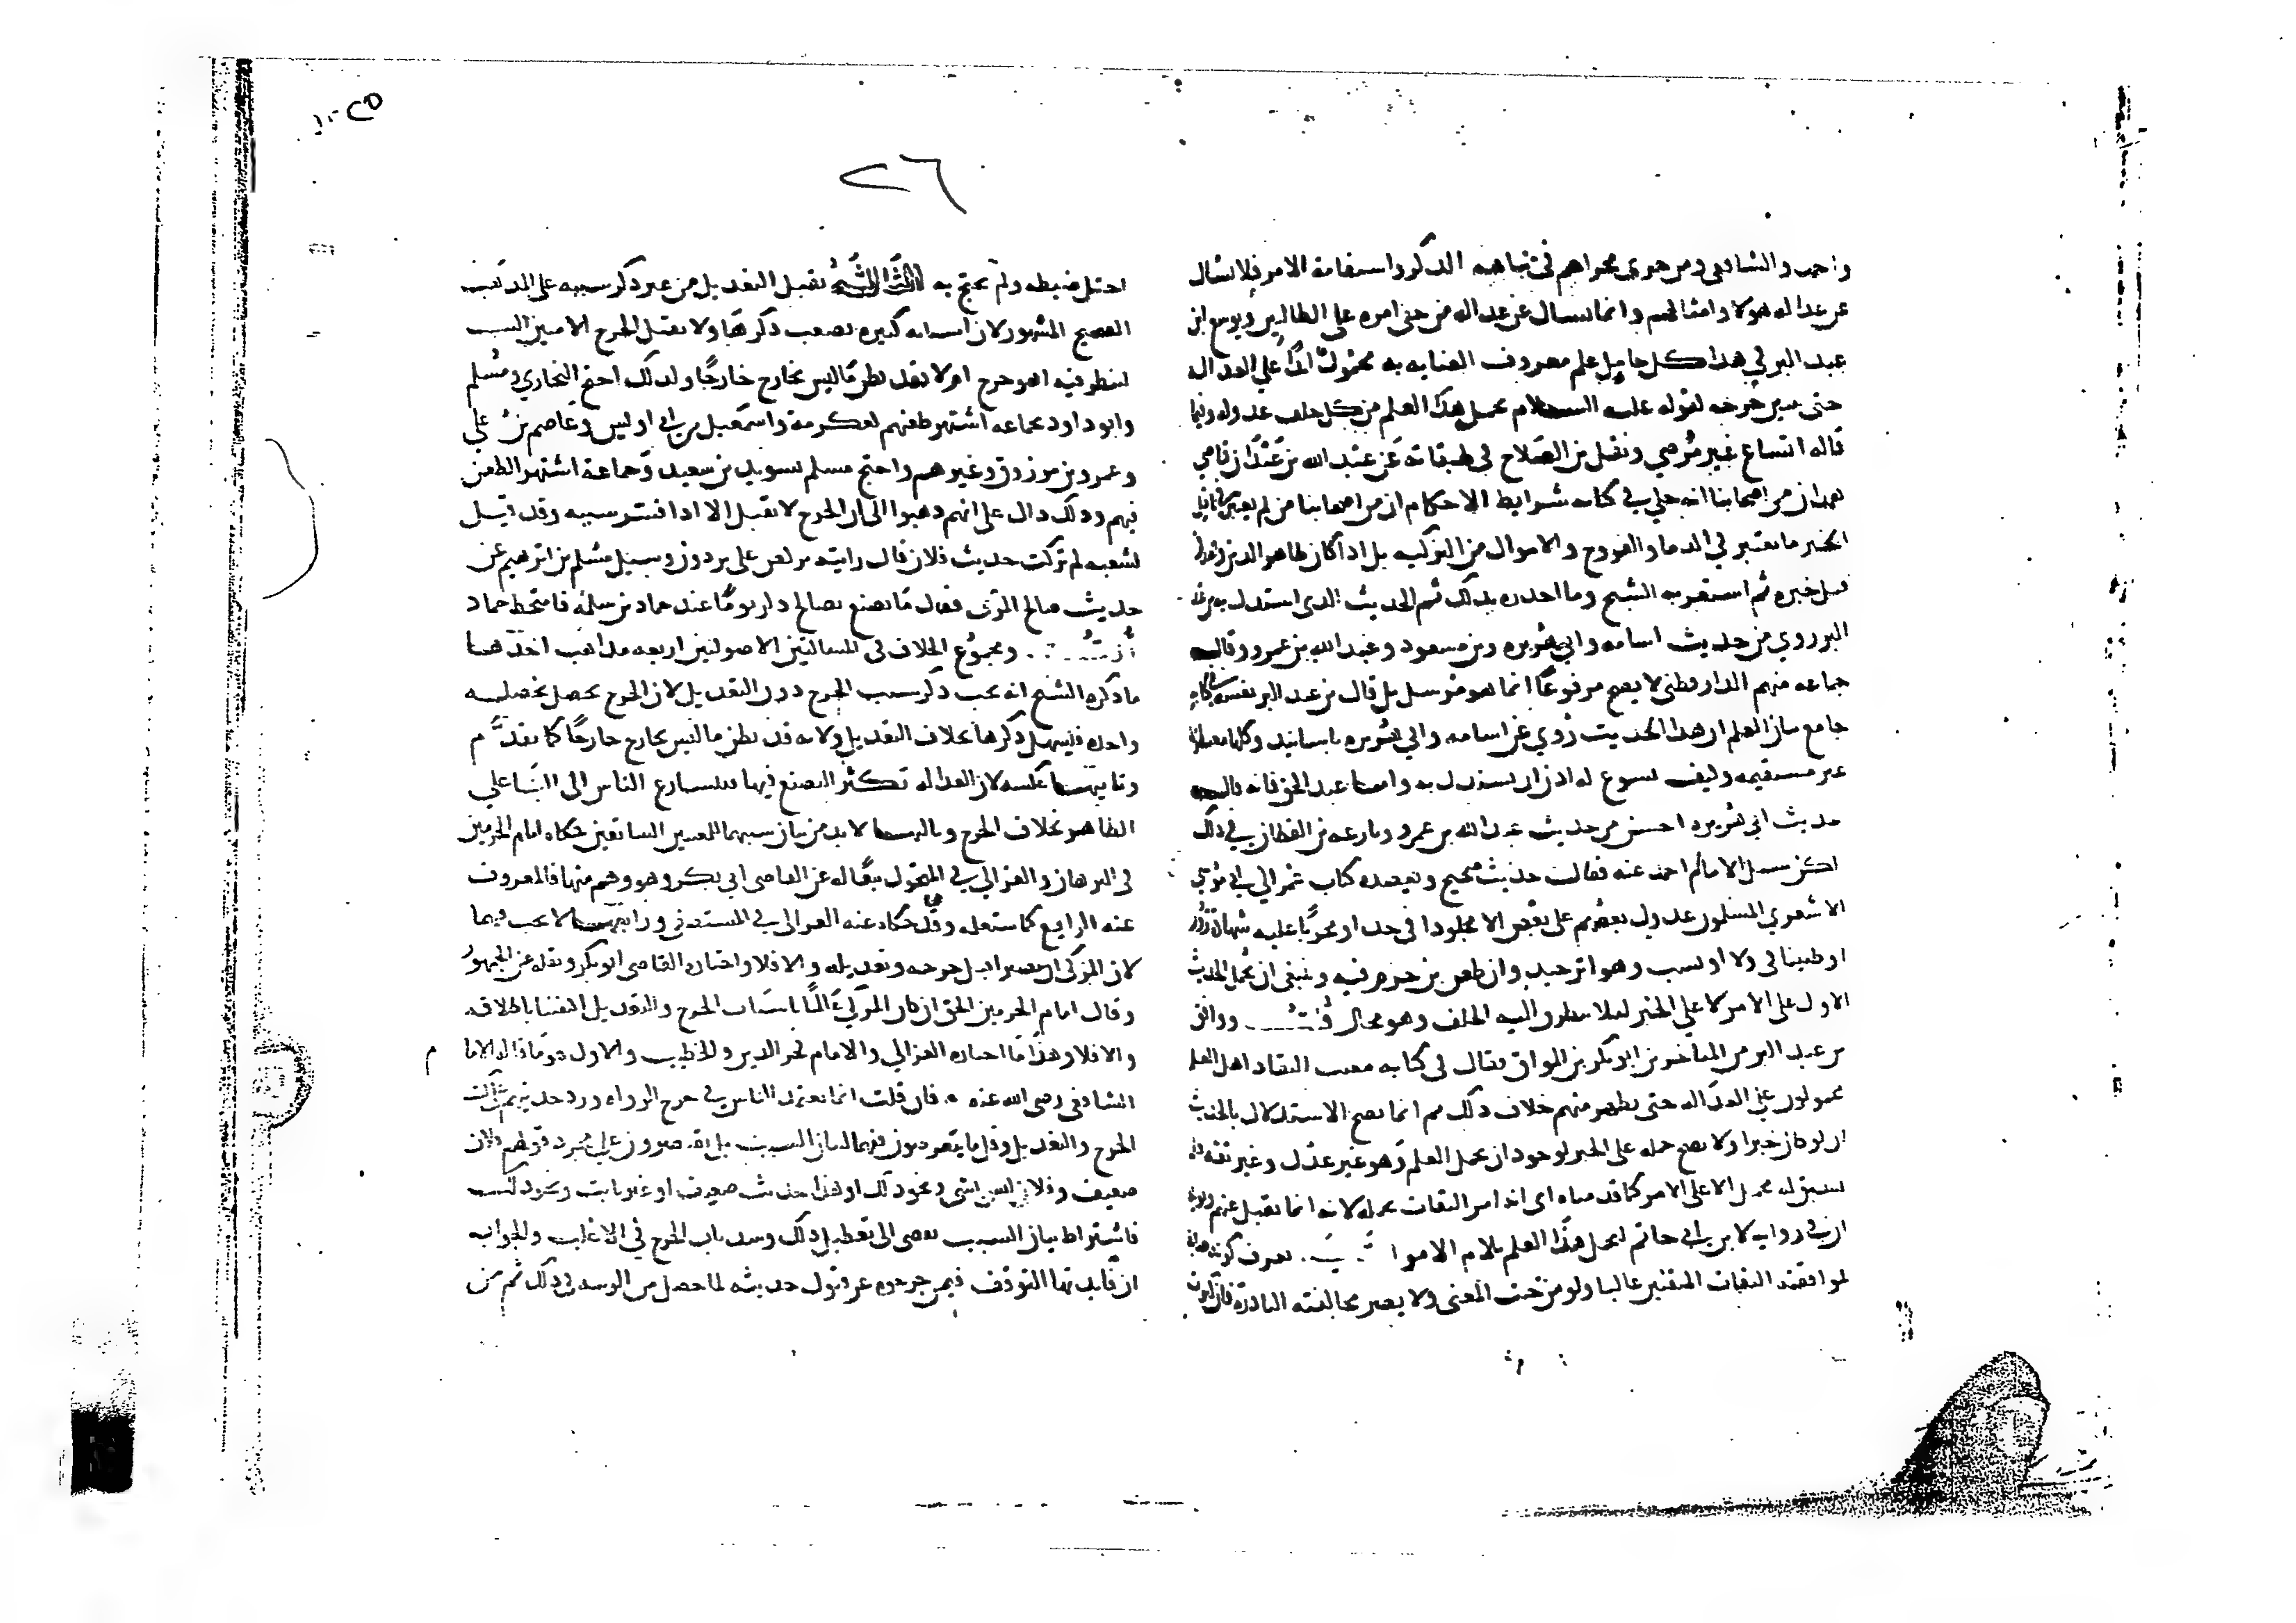 ٢٦
واحمد والشافعي ومن جرى مجراهم في نباهة الذكر واستقامة الامر فلا يسال
عن عدالة هولا وامثالهم وانما يسال عن عدالة من خفي امره على الطالبين وتوسع ابن
عبد البر في هذا كل حامل علم معروف العناية به محمول ابدا على العدالة
حتى يبين جرحه لقوله عليه السلام يحمل هذا العلم من كل خلف عدوله وفيما
قاله اتساع غير مرضي ونقل بن الصلاح في طبقاته عن عبد الله بن عبدان قاضي
همدان من اصحابنا انه حكى في كتابه شرايط الاحكام ان من اصحابنا من لم يعتبر في ناقل
الخبر ما يعتبر في الدما والفروج والاموال من التزكية بل اذا كان ظاهر الدين
قبل خبره ثم استغربه الشيخ وما احدره بذلك ثم الحديث الذي استدل به بن عبد
البر روي من حديث اسامة وابي هريرة وبن مسعود وعبد الله بن عمرو وقال
جماعة منهم الدارقطني لا يصح مرفوعا انما هو مرسل بل قال بن عبد البر نفسه في كتاب
جامع بيان العلم ان هذا الحديث روي عن اسامة وابي هريرة باسانيد وكلها مضطربة
غير مستقيمة وكيف يسوغ له اذن ان يستدل به واما عبد الحق فانه قال
حديث ابي هريرة احسن من حديث عبد الله بن عمرو ونازعه بن القطان في ذلك
لكن سئل الامام احمد عنه فقال حديث صحيح ويعضده كتاب عمر الى ابي موسى
الاشعري المسلمون عدول بعضهم على بعض الا مجلودا في حد او مجربا عليه شهادة زور
او ظنينا في ولا او نسب وهو اثر جيد وان طعن بن حزم فيه وينبغي ان يحمل الحديث
الاول على الامر لا على الخبر ليلا يتطرق اليه الخلف وهو محال قلت ووافق
بن عبد البر من المتاخرين ابو بكر بن المواق فقال في كتابه بغية النقاد اهل العلم
محمولون على العدالة حتى يظهر منهم خلاف ذلك ثم انما يصح الاستدلال بالحديث
ان لو كان خبرا ولا يصح حمله على الخبر لوجود ان يحمل العلم وهو غير عدل وغير ثقة فلم
يبق له محمل الا على الامر كما قدمناه اي انه امر الثقات بحمله لانه انما يقبل عنهم
ان في رواية لابن ابي حاتم ليحمل هذا العلم بلام الامر يعرف كونه ضابطا
لموافقته الثقات المتقنين غالبا ولو من حيث المعنى ولا يضر مخالفته النادرة فان كثرت
اختل ضبطه ولم يحتج به الثالث الشيخ يقبل التعديل من غير ذكر سببه على المذهب
الصحيح المشهور لان اسبابه كثيرة يصعب ذكرها ولا يقبل الجرح الا مبين السبب
لينظر فيه اهو جرح ام لا فقد يظن ما ليس بجارح جارحا ولذلك احتج البخاري ومسلم
وابو داود بجماعة اشتهر طعنهم كعكرمة واسمعيل بن ابي اويس وعاصم بن علي
وعمرو بن مرزوق وغيرهم واحتج مسلم بسويد بن سعيد وجماعة اشتهر الطعن
فيهم وذلك دال على انهم ذهبوا الى ان الجرح لا يقبل الا اذا فسر سببه وقد قيل
لشعبة لم تركت حديث فلان قال رايته يركض على برذون وسيل مسلم بن ابرهيم عن
حديث صالح المري فقال ما تصنع بصالح ذكر يوما عند حماد بن سلمة فامتخط حماد
قلت ومجموع الخلاف في المسالتين الاصوليين اربعة مذاهب احدها
ما ذكره الشيخ انه يجب ذكر سبب الجرح دون التعديل لان الجرح يحصل بخصلة
واحدة فيسهل ذكرها بخلاف التعديل ولانه قد يظن ما ليس بجارح جارحا كما تقدم
وثانيها عكسه لان العدالة تكثر التصنع فيها فيتسارع الناس الى الثنا على
الظاهر بخلاف الجرح وثالثها لا بد من بيان سببهما للمعنيين السابقين حكاه امام الحرمين
في البرهان والغزالي في المنخول تبعا له عن القاضي ابي بكر وهو وهم منهما فالمعروف
عنه الرابع كما ستعلمه وقد حكاه عنه الغزالي في المستصفى ورابعها لا يجب فيهما
لان المزكي ان بصيرا قبل جرحه وتعديله والا فلا واختاره القاضي ابو بكر ونقله عن الجمهور
وقال امام الحرمين الحق ان كان المزكي عالما باسباب الجرح والتعديل اكتفينا باطلاقه
والا فلا وهذا ما اختاره الغزالي والامام فخر الدين والخطيب والاول هو ما قاله الامام
الشافعي رضي الله عنه فان قلت انما يعتمد الناس في جرح الرواة ورد حديثهم كتب
الجرح والتعديل وقل ما يتعرضون فيها لبيان السبب بل يقتصرون على مجرد قولهم فلان
ضعيف وفلان ليس بشي ونحو ذلك او هذا حديث ضعيف او غير ثابت ونحو ذلك
فاشتراط بيان السبب يفضي الى تعطيل ذلك وسد باب الجرح في الاغلب والجواب
ان فايدتها التوقف فيمن جرحوه عن قبول حديثه لما حصل من الريبة في ذلك ثم من